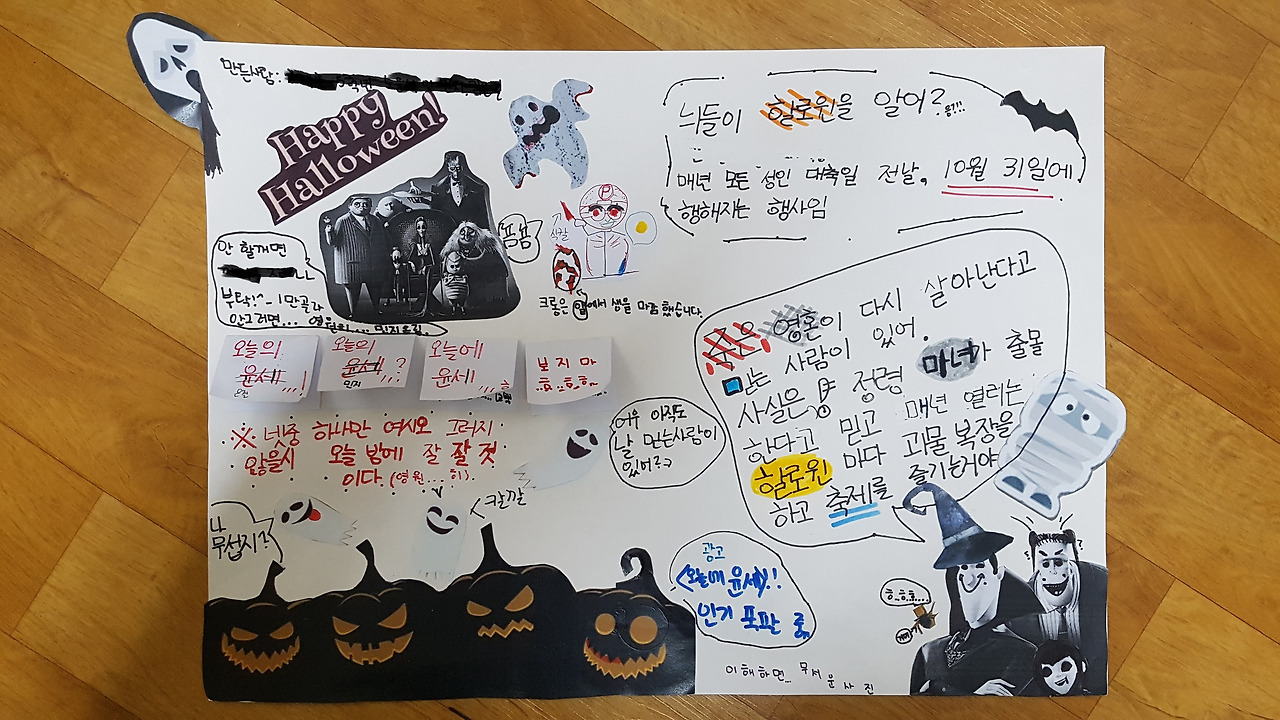 만든사람:
Happy
Halloween!
늬들이 할로윈을 알어?
응?!!!
매년 모든 성인 대축일 전날, 10월 31일에
행해지는 행사임
안 할꺼면
부탁!^-^
1만골라
안그러면...
뽐뽐
P
시갈
크롱은 앱에서 생을 마감했습니다.
오늘의
윤세...!
오늘의
윤세...?
오늘에
윤세...
보지 마
ㅎ.ㅎ.ㅎ..
※ 넷중 하나만 여시오 그러지
않을시 오늘 밤에 잘 잘 것
이다.(영원...히)
어유 아직도
날 믿는사람이
있어?
죽은 영혼이 다시 살아난다고
믿는 사람이 있어.
사실은 정령 마녀가 출몰
한다고 믿고 매년 열리는
할로윈 마다 괴물 복장을
하고 축제를 즐기는거야
나
무섭지?
<칼깔
광고
<오늘에 윤세>!!
인기 폭팔 중
ㅎ.ㅎ.ㅎ...
이해하면... 무서운사진